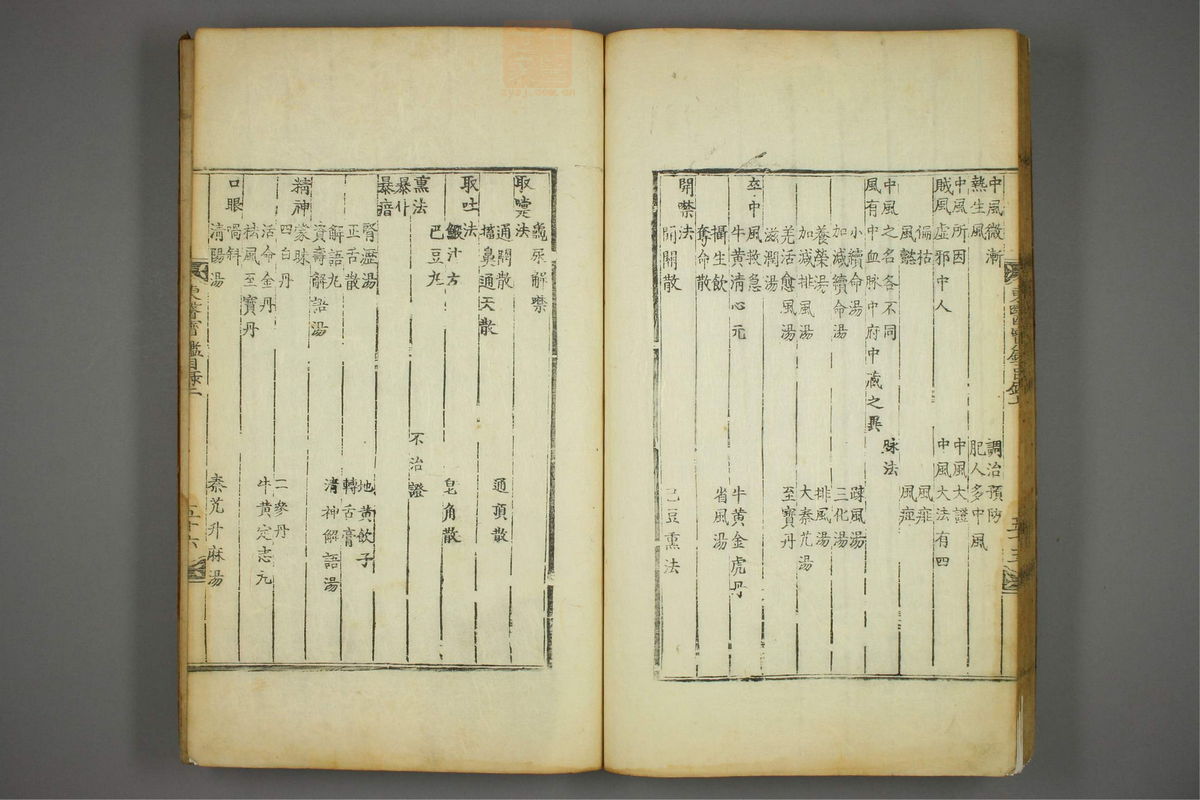 中風微漸 調治預防
熱生風 肥人多中風
中風所因 中風大證
賊風虛邪中人 中風大法有四
偏枯 風痱
風懿 風痺
中風之名各不同 脉法
風有中血脉中府中藏之異
小續命湯 踈風湯
加減續命湯 三化湯
養榮湯 排風湯
加減排風湯 大秦艽湯
羌活愈風湯 至寶丹
滋潤湯
卒中風救急
牛黃淸心元 牛黃金虎丹
攝生飮 省風湯
奪命散
開噤法
開關散 巴豆熏法
龜尿解噤
取嚔法
通關散 通頂散
搐鼻通天散
取吐法
鰕汁方 皂角散
巴豆丸
熏法 不治證
暴仆
暴瘖
腎瀝湯 地黃飮子
正舌散 轉舌膏
解語丸 淸神解語湯
資壽解語湯
精神蒙昧
四白丹 二參丹
活命金丹 牛黃定志丸
祛風至寶丹
口眼喎斜
淸陽湯 秦艽升麻湯
東醫寶鑑目錄二
五十六